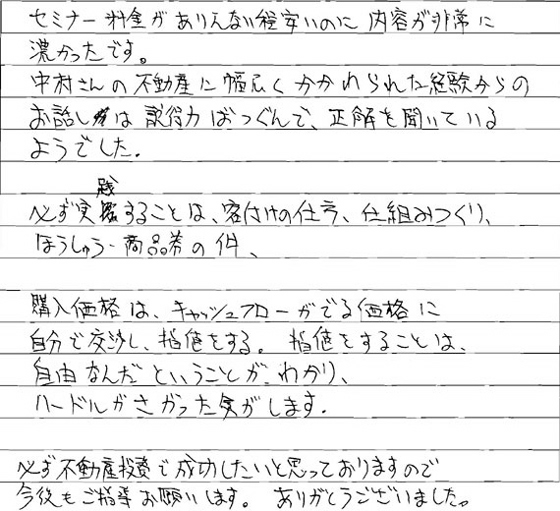 セミナー料金がありえない程安いのに内容が非常に
濃かったです。
中村さんの不動産に幅広くかかわられた経験からの
お話しは説得力ばつぐんで、正解を聞いている
ようでした。
必ず実践することは、客付けの仕方、仕組みつくり、
ほうしゅう・商品券の件、
購入価格は、キャッシュフローがでる価格に
自分で交渉し、指値をする。指値をすることは、
自由なんだということがわかり、
ハードルがさがった気がします。
必ず不動産投資で成功したいと思っておりますので
今後もご指導お願いします。ありがとうございました。